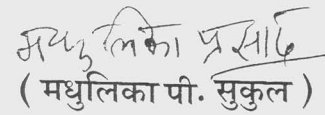 मधुलिका प्रसाद
( मधुलिका पी. सुकुल )